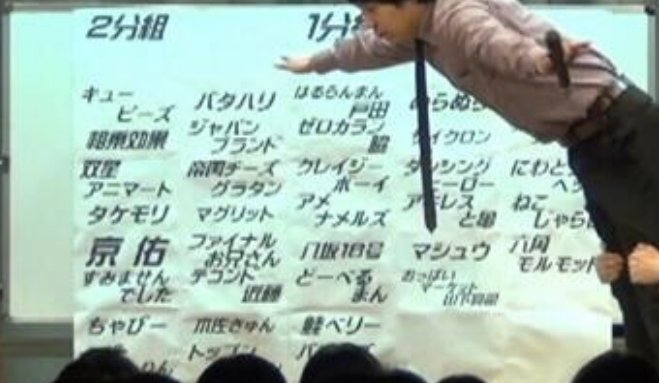 2分組
1分
キュー
ピーズ
相乗効果
双星
アニマート
タケモリ
京佑
すみません
でした
ちゃびー
バタハリ
ジャパン
ブランド
帝国チーズ
グラタン
マグリット
ファイナル
お兄さん
デコンド
近藤
爪佐きゅん
トップ
はるらんまん
戸田
ゼロカラン
脇
クレイジー
ボーイ
アメ
ナメルズ
八坂18号
どーべる
まん
鮭ベリー
サイクロン
ダンシング
ヒーロー
アドレス
と亀
マシュウ
おっぱい
マーケット
にわと
ヘッ
ねこ
じゃら
六岡
モルモット